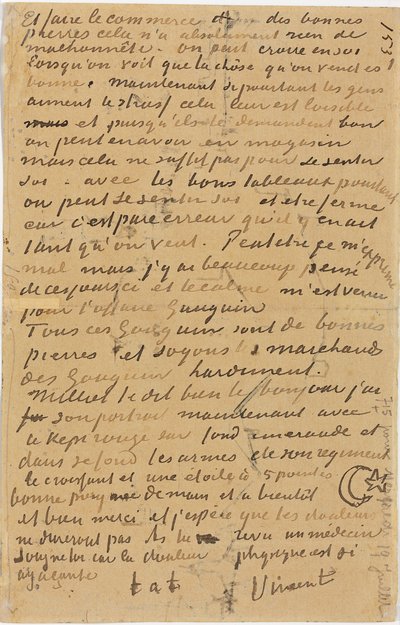 Et faire le commerce des bonnes
pierres cela n'a absolument rien de
malhonnête. On peut croire en soi
lorsqu'on voit que la chose qu'on vend est
bonne. maintenant si pourtant les gens
aiment le strass cela leur est loisible
et puisqu'ils le demandent bon
on peut en avoir en magasin
mais cela ne suffit pas pour se sentir
soi. avec les bons tableaux pourtant
on peut se sentir soi et etre ferme
car c'est pure erreur qu'il y en ait
tant qu'on veut. Peutetre je m'exprime
mal mais j'y ai beaucoup pensé
de ces jours ci et le calme m'est venu
pour l'affaire Gauguin
Tous ces Gauguin sont de bonnes
pierres et soyons les marchands
des Gauguin hardiment.
Milliet te dit bien le bonjour j'ai
son portrait maintenant avec
le kepi rouge sur fond emeraude et
dans ce fond les armes de son regiment
le croissant et une étoile à 5 pointes
bonne poignée de main et a bientôt
et bien merci et j'espère que les douleurs
ne dureront pas As tu revu un médecin
soigne toi car la douleur physique est si
agaçante
t. à t. Vincent
153